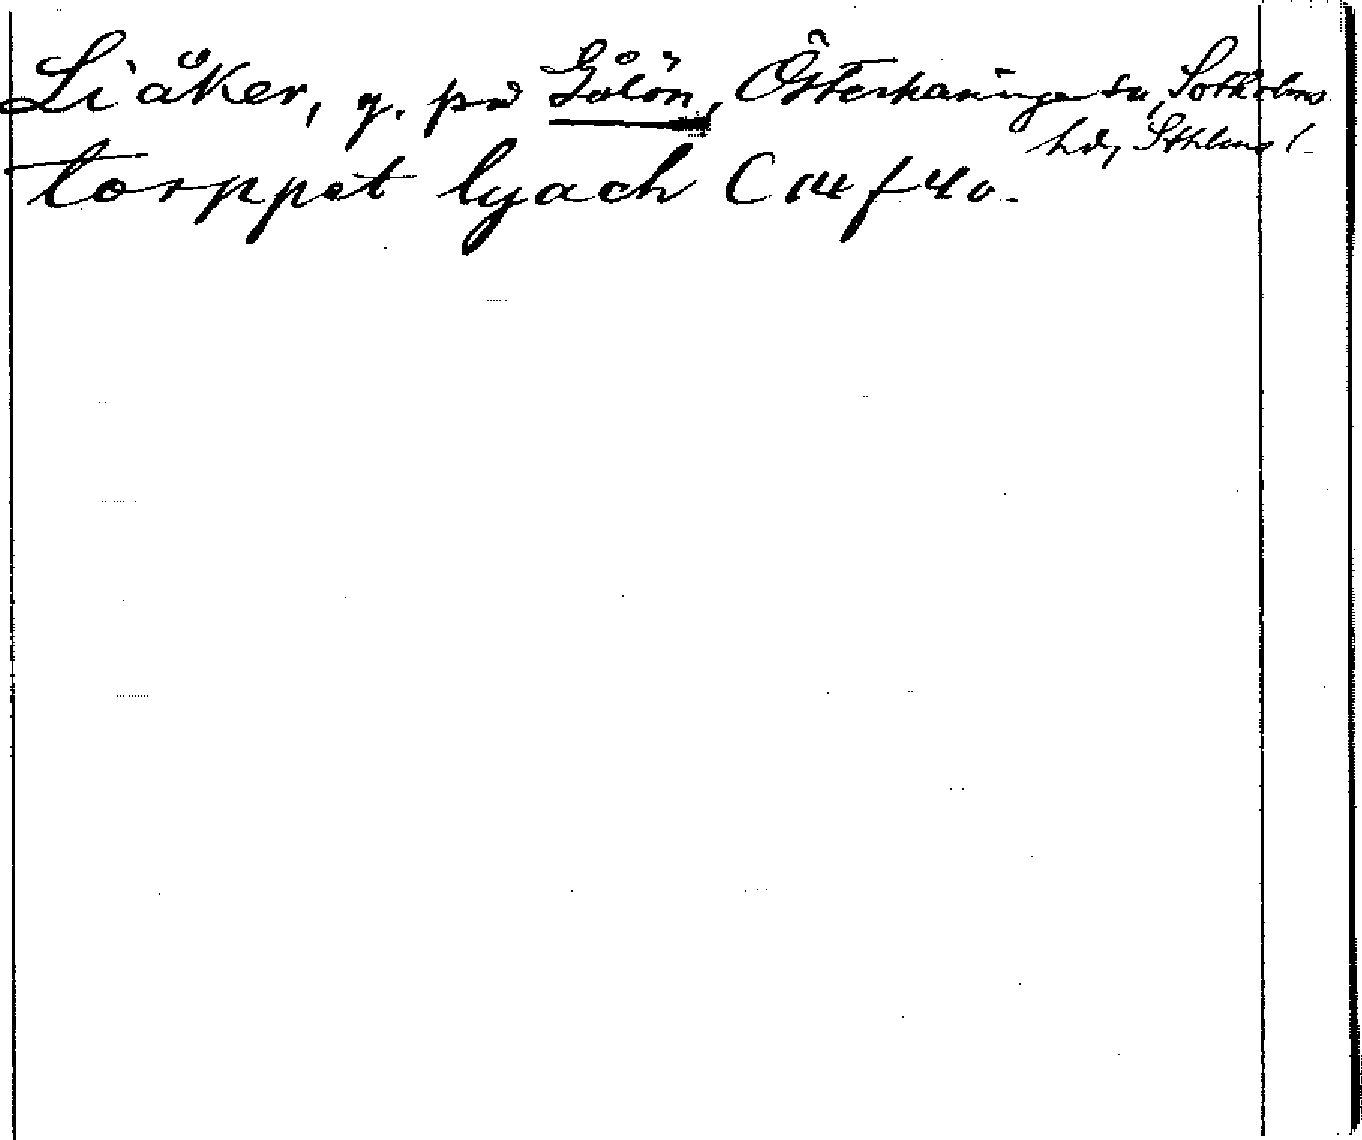 Liåker, g. på Gålön, Österhaninge sn, Sotholms
hd, Sthlms l.
torppet lyach C 14 f 40.